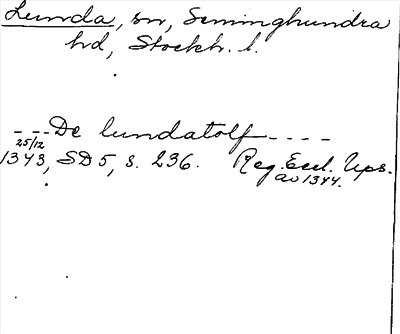 Lunda, sn, Seminghundra
hd, Stockh. l.
---De lundatolf----
25/12
1343, SD 5, s. 236. Reg. Eccl. Ups.
av 1344.